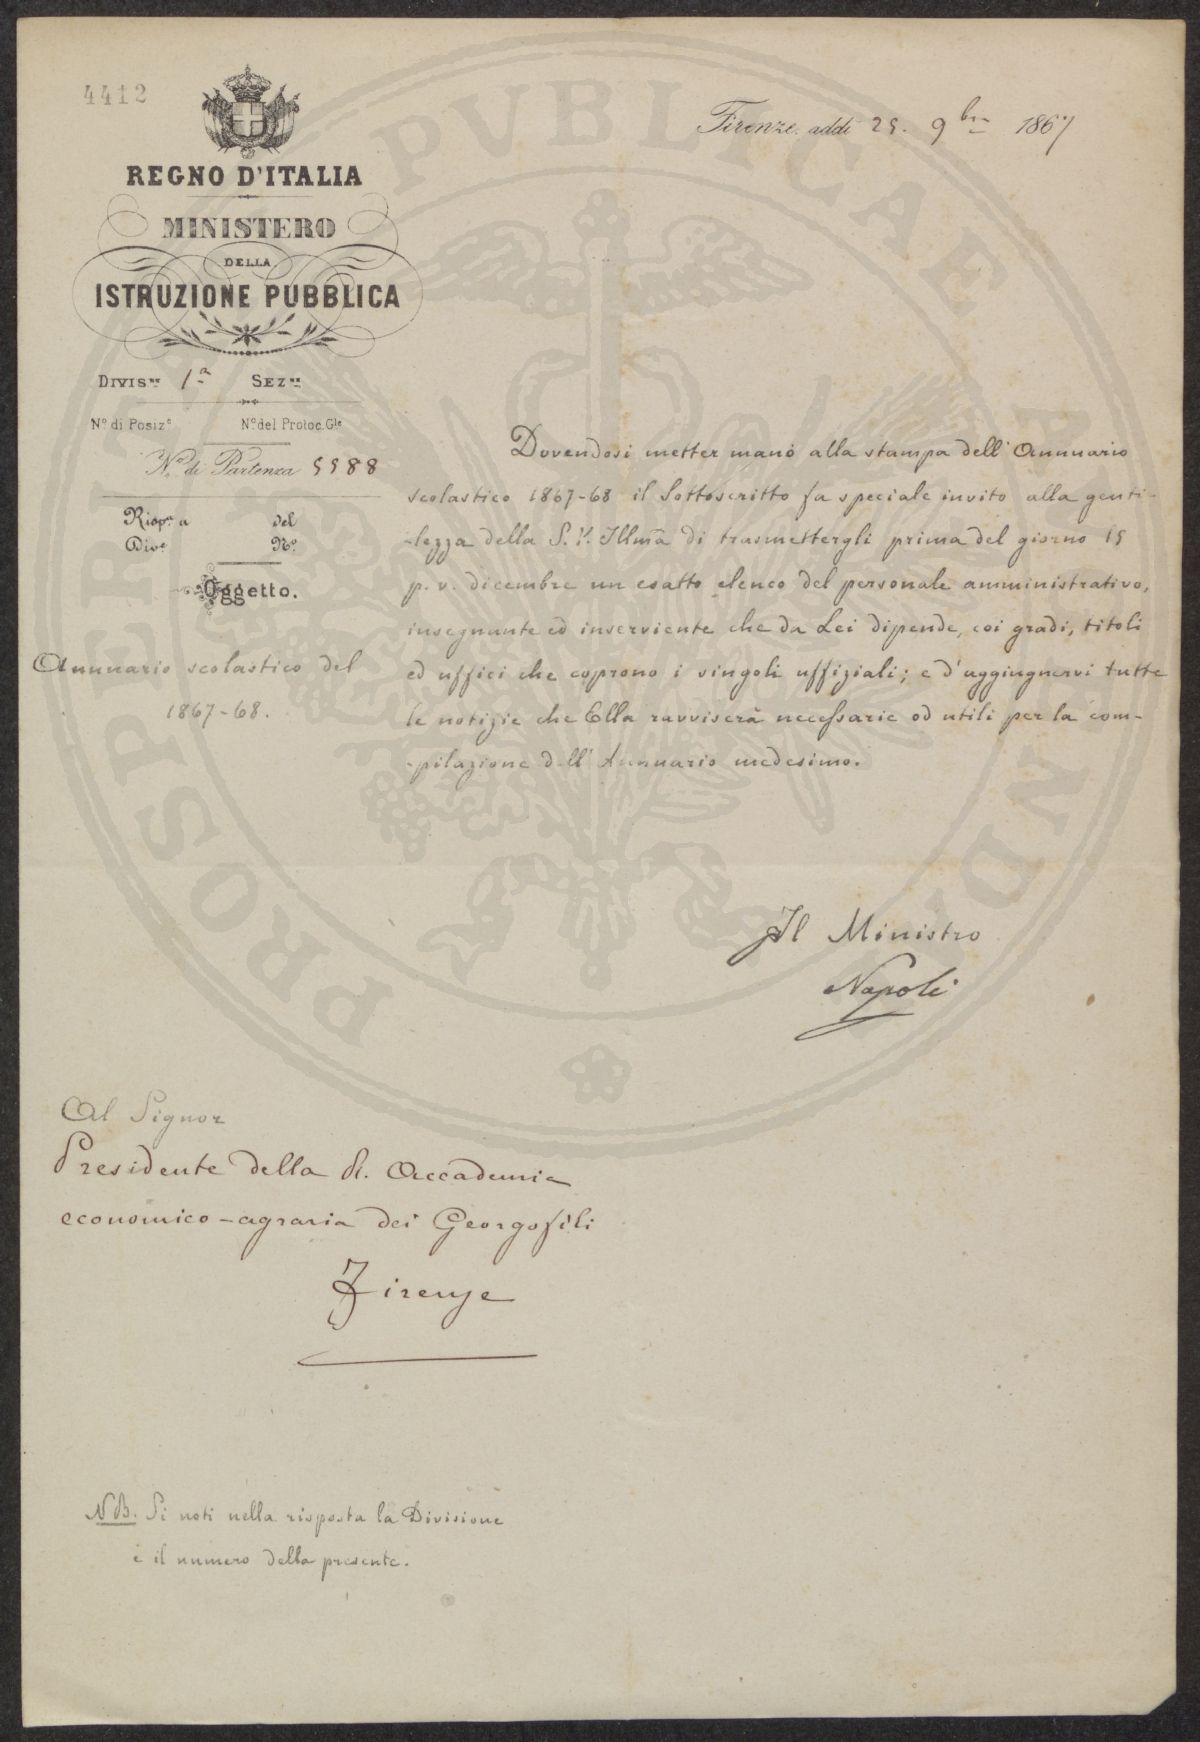 4412
Firenze, addì 25. 9bre 1867
REGNO D'ITALIA
MINISTERO
DELLA
ISTRUZIONE PUBBLICA
DIVISne 1a SEZne
No. di Posize No. del Protoc. Gle
No. di Partenza 5588
Rispta a del
Dive No.
Oggetto.
Annuario scolastico del
1867-68.
Dovendosi metter mano alla stampa dell'Annuario
scolastico 1867-68 il Sottoscritto fa speciale invito alla genti-
-lezza della S. V. Illma di trasmettergli prima del giorno 15
p. v. dicembre un esatto elenco del personale amministrativo,
insegnante ed inserviente che da Lei dipende, coi gradi, titoli
ed uffici che coprono i singoli uffiziali; e d'aggiugnervi tutte
le notizie che Ella ravviserà necessarie od utili per la com-
-pilazione dell'Annuario medesimo.
Il Ministro
Napoli
Al Signor
Presidente della R. Accademia
economico-agraria dei Georgofili
Firenze
NB. Si noti nella risposta la Divisione
e il numero della presente.
PROSPERITATI PVBLICAE AVGENDAE